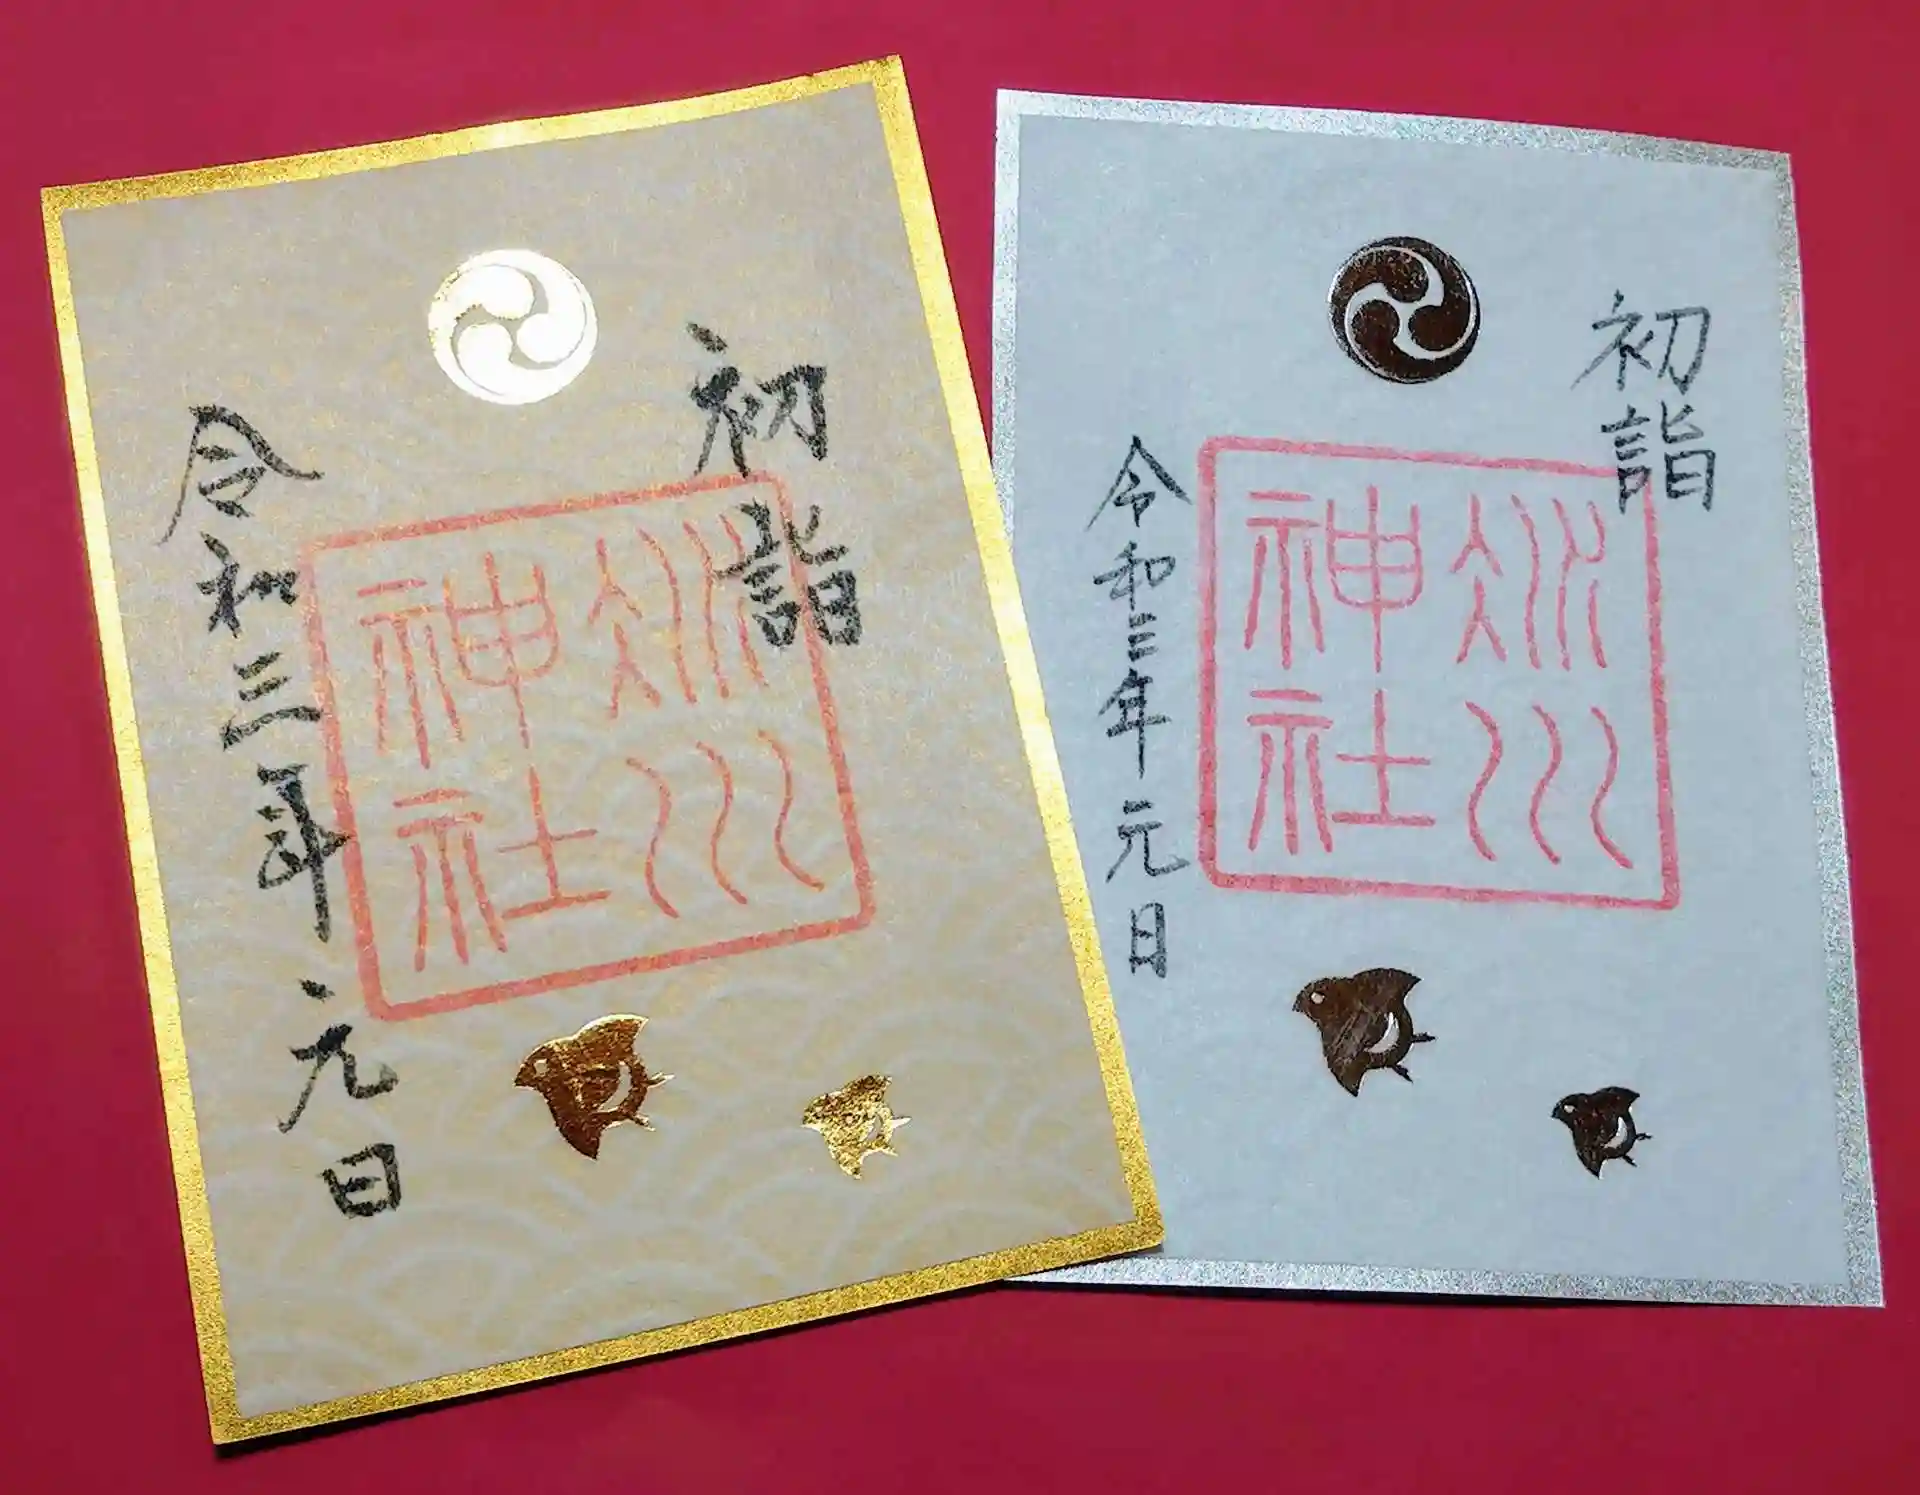 初詣
冰川
神社
令和三年元日
初詣
冰川
神社
令和三年元日